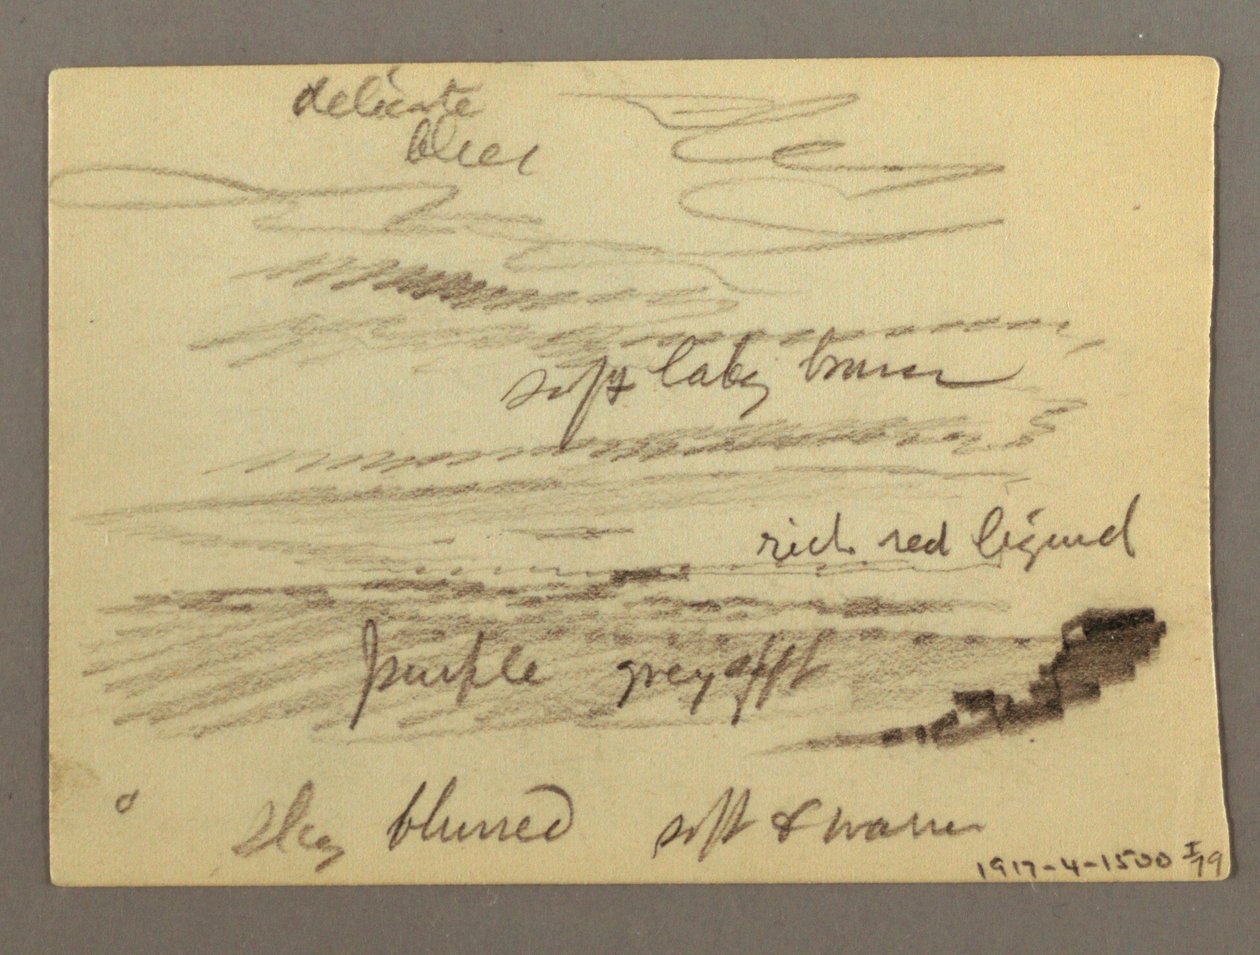 delicate
blue
soft
rich red liquid
purple grey soft
sky blurred soft & warm
1917-4-1500 I/79